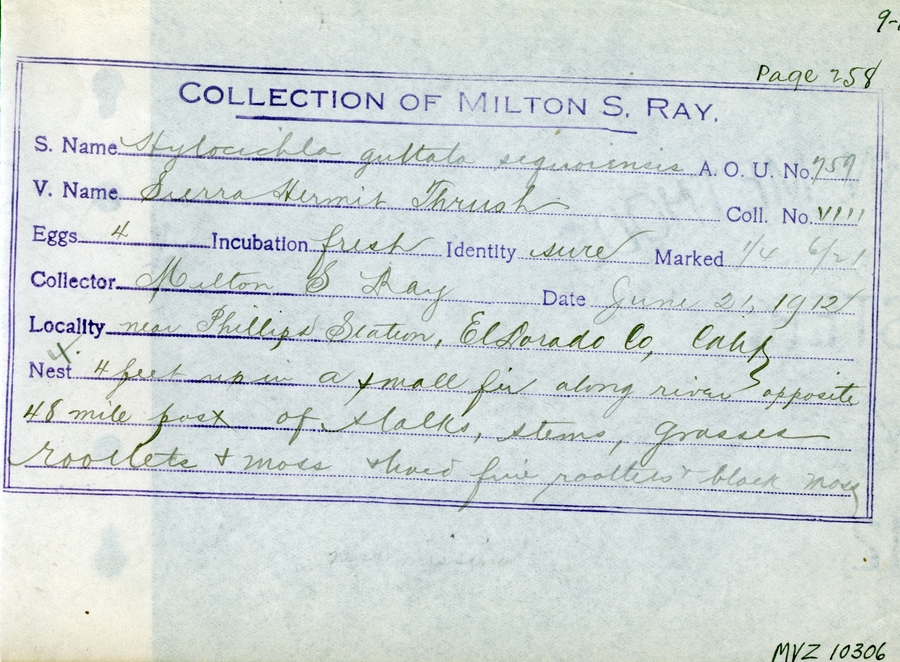 9-
Page 258
COLLECTION OF MILTON S. RAY.
S. Name Hylocichla guttata sequoiensis A. O. U. No. 759
V. Name Sierra Hermit Thrush Coll. No. VIIII
Eggs 4 Incubation fresh Identity sure Marked 1/4 6/21
Collector Milton S Ray Date June 21, 1912
Locality near Phillips Station, El Dorado Co, Calif
Nest 4 feet up in a small fir along river opposite
48 mile post of stalks, stems, grasses
rootlets & moss fine rootlets & black moss
MVZ 10306